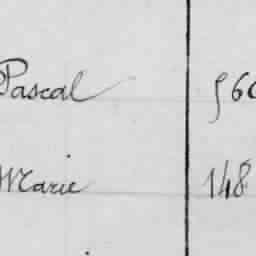 Pascal 560
Marie 148